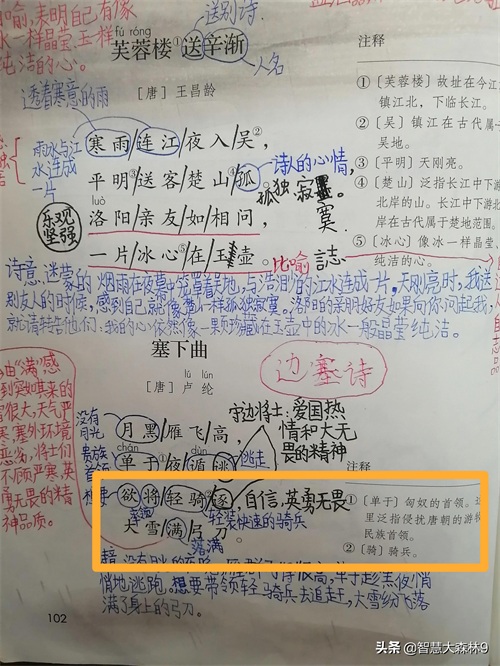 喻,表明自己有像
冰一样晶莹,玉一样
纯洁的心。
送别诗
fú róng
芙蓉楼①送辛渐
人名
[唐] 王昌龄
透着寒意的雨
雨水与江
水连成
一片
寒雨/连江/夜入/吴②,
平明③/送客/楚山④/孤。
诗人的心情,
孤独寂寞
luò
洛阳/亲友/如/相问,
一片/冰心⑤/在/玉壶。
乐观
坚强
比喻
誌
诗意:迷蒙的烟雨在夜幕中笼罩着吴地,与浩泪的江水连成一片,天刚亮时,我送
别友人的时候,感到自己就像楚山一样孤独寂寞。洛阳的亲朋好友如果向你问起我,
就请转告他们:我的心依然像一颗珍藏在玉壶中的冰一般晶莹纯洁。
注释
①〔芙蓉楼〕故址在今江
镇江北,下临长江。
②〔吴〕镇江在古代属于
吴地。
③〔平明〕天刚亮。
④〔楚山〕泛指长江中下游
北岸的山。长江中下游
岸在古代属于楚地范围。
⑤〔冰心〕像冰一样晶莹、
纯洁的心。
塞下曲
lú lún
[唐] 卢纶
边塞诗
由"满"感
到突如其来的
雪很大,天气严
寒,塞外环境
恶劣,将士们
不顾严寒,英
勇无畏的精
神品质。
没有
月光
月黑/雁飞/高,
守边将士:爱国热
情和大无
畏的精神
贵族
首领
chán dùn
单于/夜/遁逃。
逃走
想要
欲/将/轻骑/逐,
自信,英勇无畏
率领
轻装快速的骑兵
大雪/满/弓刀。
落满
注释
①〔单于〕匈奴的首领。这
里泛指侵扰唐朝的游牧
民族首领。
②〔骑〕骑兵。
悄地逃跑。想要带领轻骑兵去追赶,大雪纷飞落
满了身上的弓刀。
102
头条 @智慧大森林9